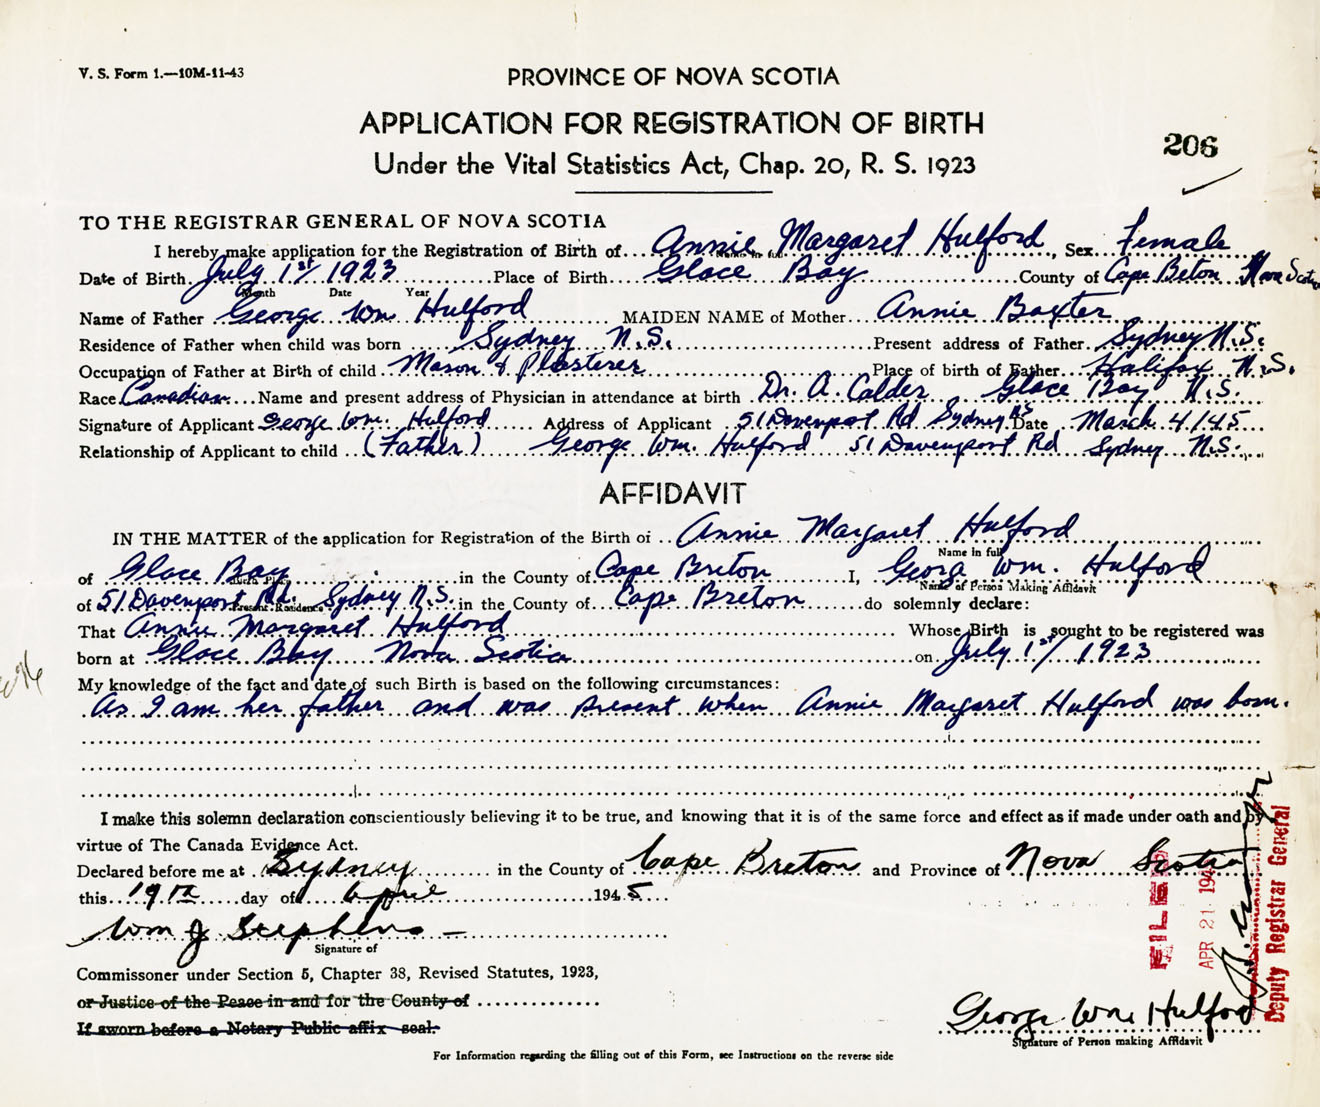 V. S. Form 1.—10M-11-43
PROVINCE OF NOVA SCOTIA
APPLICATION FOR REGISTRATION OF BIRTH
Under the Vital Statistics Act, Chap. 20, R. S. 1923
206
TO THE REGISTRAR GENERAL OF NOVA SCOTIA
I hereby make application for the Registration of Birth of Annie Margaret Hulford, Sex Female
Name in full
Date of Birth July 1st/1923 Place of Birth Glace Bay County of Cape Beton Nova Scotia
Month Date Year
Name of Father George Wm Hulford MAIDEN NAME of Mother Annie Baxter
Residence of Father when child was born Sydney N.S. Present address of Father Sydney N.S.
Occupation of Father at Birth of child Mason & Plasterer Place of birth of Father Halifax N.S.
Race Canadian Name and present address of Physician in attendance at birth Dr. A. Calder Glace Bay N.S.
Signature of Applicant George Wm. Hulford Address of Applicant 51 Davenport Rd Sydney NS Date March 4/45
Relationship of Applicant to child (Father) George Wm. Hulford 51 Davenport Rd Sydney N.S.
AFFIDAVIT
IN THE MATTER of the application for Registration of the Birth of Annie Margaret Hulford
Name in full
of Glace Bay in the County of Cape Breton I, Georg Wm. Hulford
Birth Place Name of Person Making Affidavit
of 51 Davenport Rd. Sydney N.S. in the County of Cape Breton do solemnly declare:
Present Residence
That Annie Margaret Hulford Whose Birth is sought to be registered was
born at Glace Bay Nova Scotia on July 1st/1923
My knowledge of the fact and date of such Birth is based on the following circumstances:
As I am her father and was present when Annie Margaret Hulford was born.
I make this solemn declaration conscientiously believing it to be true, and knowing that it is of the same force and effect as if made under oath and by
virtue of The Canada Evidence Act.
Declared before me at Sydney in the County of Cape Breton and Province of Nova Scotia
this 19th day of April 1945
Wm J Stephens
Signature of
Commissoner under Section 5, Chapter 38, Revised Statutes, 1923,
or Justice of the Peace in and for the County of
If sworn before a Notary Public affix seal.
FILED
APR 21 194
Deputy Registrar General
George Wm Hulford
Signature of Person making Affidavit
For Information regarding the filling out of this Form, see Instructions on the reverse side